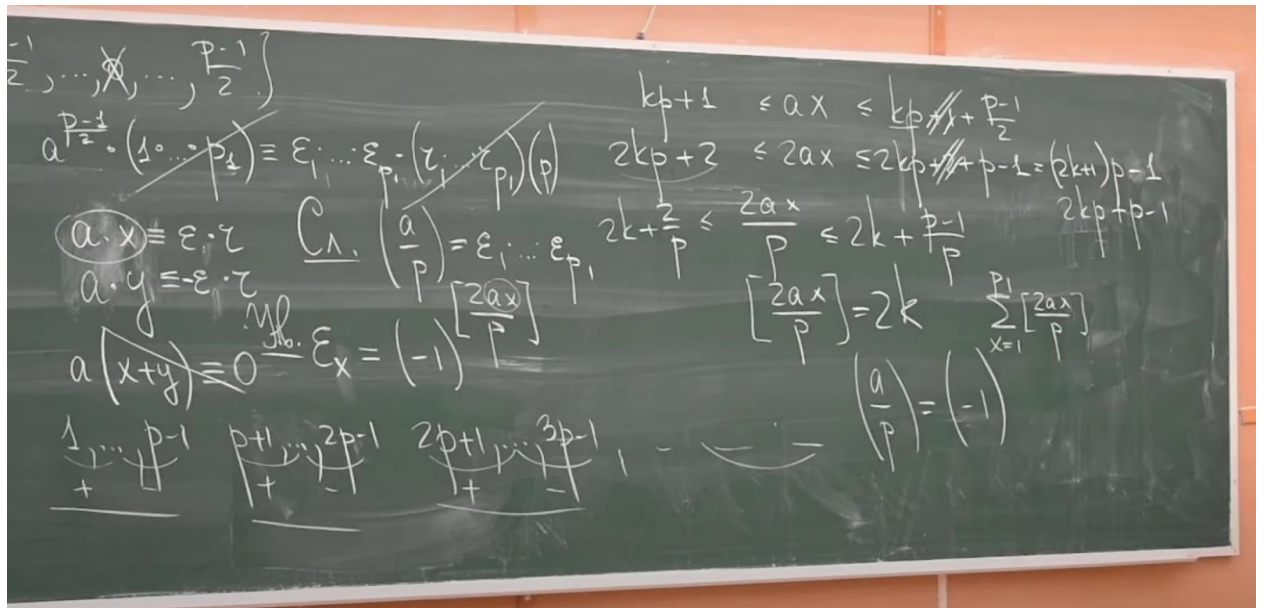 -1/2, ..., 0̸, ..., (p-1)/2 }
a^((p-1)/2) · (1 · ... · p₁) ≡ ε₁ ... ε_p₁ · (r₁ ... r_p₁) (p)
a · x ≡ ε · r
a · y ≡ -ε · r
a(x+y) ≡ 0
Сл. (a/p) = ε₁ ... ε_p₁
Утв. ε_x = (-1)^[2ax/p]
1, ..., p-1   p+1, ..., 2p-1   2p+1, ..., 3p-1, - - -
+ - + - + -
kp+1 ≤ ax ≤ kp + (p-1)/2
2kp+2 ≤ 2ax ≤ 2kp + p-1 = (2k+1)p-1
2kp+p-1
2k + 2/p ≤ 2ax/p ≤ 2k + (p-1)/p
[2ax/p] = 2k
(a/p) = (-1)^(∑_{x=1}^{p₁} [2ax/p])